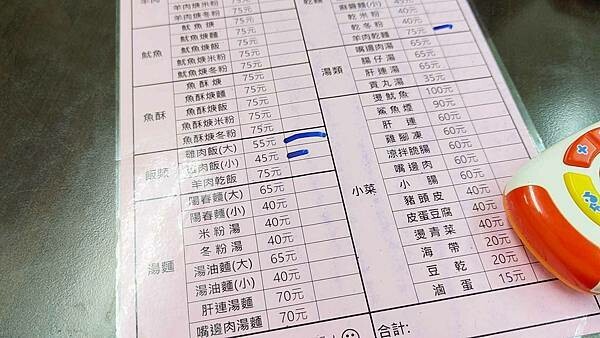 羊肉
羊肉焿米粉 75元
羊肉焿冬粉 75元
魷魚
魷魚焿 75元
魷魚焿麵 75元
魷魚焿飯 75元
魷魚焿米粉 75元
魷魚焿冬粉 75元
魚酥
魚酥焿 75元
魚酥焿麵 75元
魚酥焿飯 75元
魚酥焿米粉 75元
魚酥焿冬粉 75元
飯類
雞肉飯(大) 55元
肉飯(小) 45元
羊肉乾飯 75元
湯麵
陽春麵(大) 65元
陽春麵(小) 40元
米粉湯 40元
冬粉湯 40元
湯油麵(大) 65元
湯油麵(小) 40元
肝連湯麵 70元
嘴邊肉湯麵 70元
乾麵
麻醬麵(小) 45元
乾米粉 40元
乾冬粉 40元
羊肉乾麵 75元
湯類
嘴邊肉湯 65元
腸仔湯 65元
肝連湯 65元
貢丸湯 35元
小菜
燙魷魚 100元
鯊魚煙 90元
肝連 60元
雞腳凍 60元
涼拌脆腸 60元
嘴邊肉 60元
小腸 60元
豬頭皮 40元
皮蛋豆腐 40元
燙青菜 40元
海帶 20元
豆乾 20元
滷蛋 15元
合計: